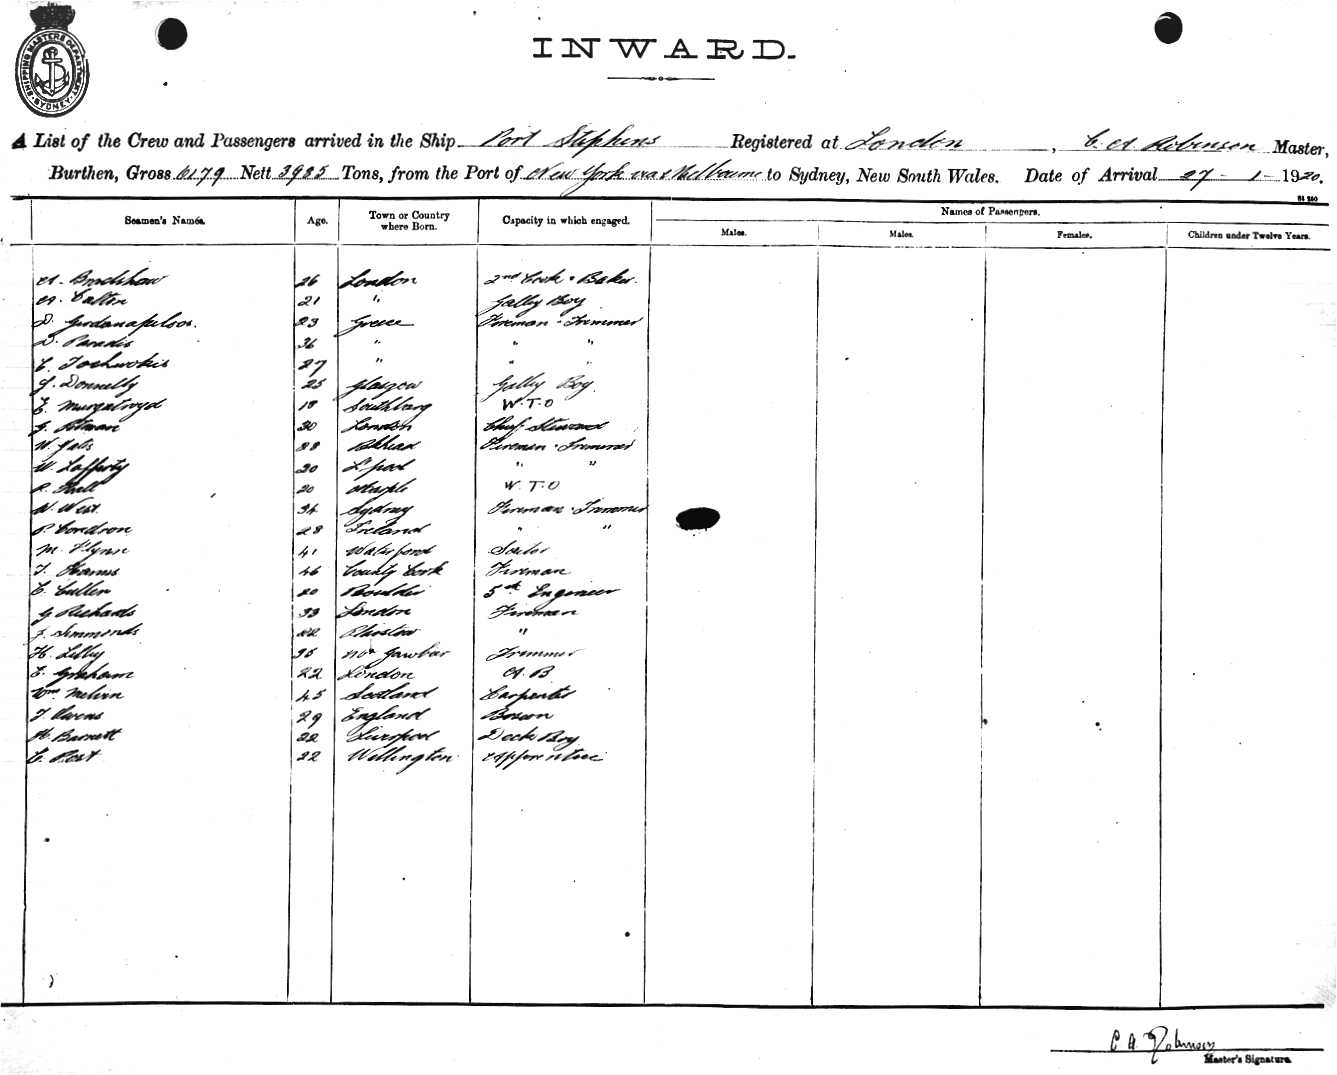 SHIPPING MASTERS DEPARTMENT SYDNEY
INWARD.
A List of the Crew and Passengers arrived in the Ship Port Stephens Registered at London, C. A. Robinson Master,
Burthen, Gross 6179 Nett 3985 Tons, from the Port of New York via Melbourne to Sydney, New South Wales. Date of Arrival 27-1-1920.
Seamen's Names. Age. Town or Country where Born. Capacity in which engaged. Names of Passengers.
Males. Males. Females. Children under Twelve Years.
A. Bradshaw 26 London 2nd Cook & Baker.
A. 21 " Gally Boy
D. 23 Greece Fireman - Trimmer
D. Paradis 36 " " "
27 " " "
J. Donnelly 25 Glasgow Gally Boy
E. Murgatroyd 18 W.T.O
G. Pitman 30 London Chief Steward
W. 28 B'khead Fireman - Trimmer
W. Lafferty 20 L'pool " "
R. Hall 20 W.T.O
W. West 34 Sydney Fireman - Trimmer
P. Condron 28 Ireland " "
M. Flynn 41 Waterford Sailor
T. 46 County Cork Fireman
C. Cullen 20 Boulder 5th Engineer
G Richards 33 London Fireman
J. Simmonds 22 Plaistow "
H. Lilley 35 Trimmer
E. Graham 22 London A.B
Wm Melvin 45 Scotland Carpenter
T. Owens 29 England Bosun
H. Barnett 22 Liverpool Deck Boy
C. 22 Wellington Apprentice
C A Robinson
Master's Signature.